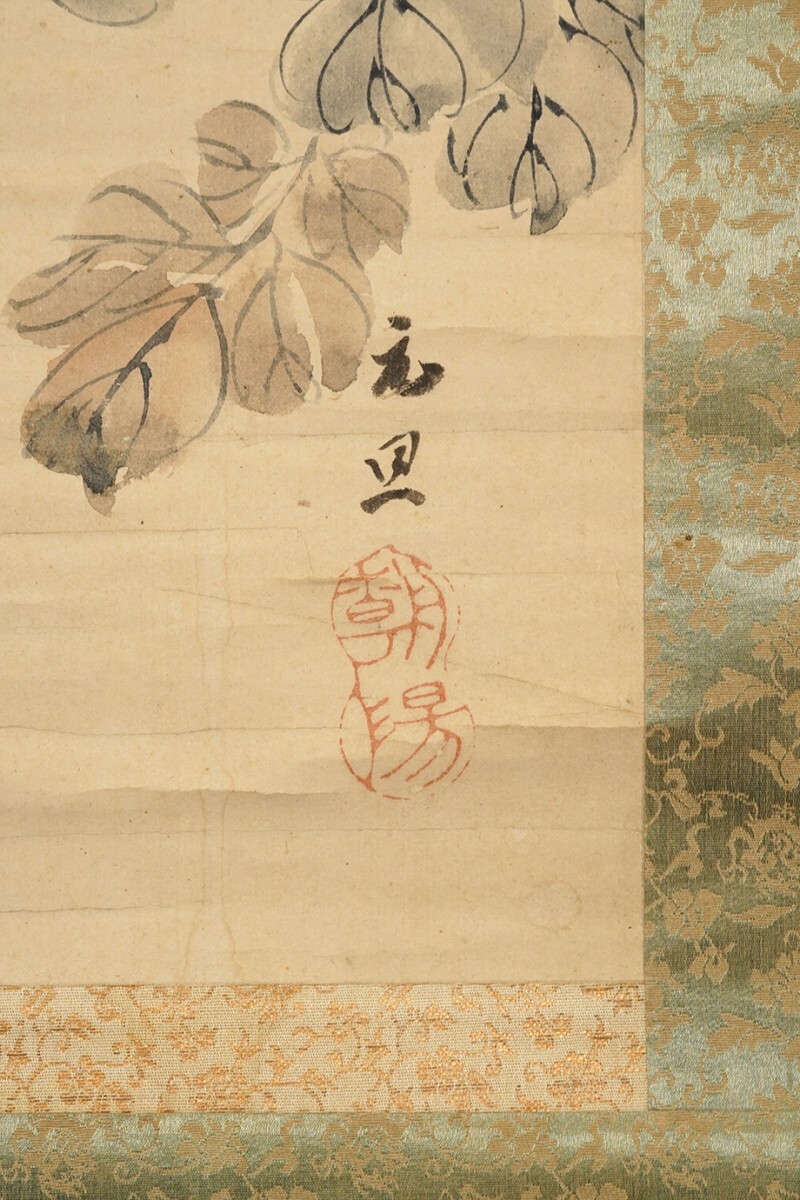 元旦
朝陽